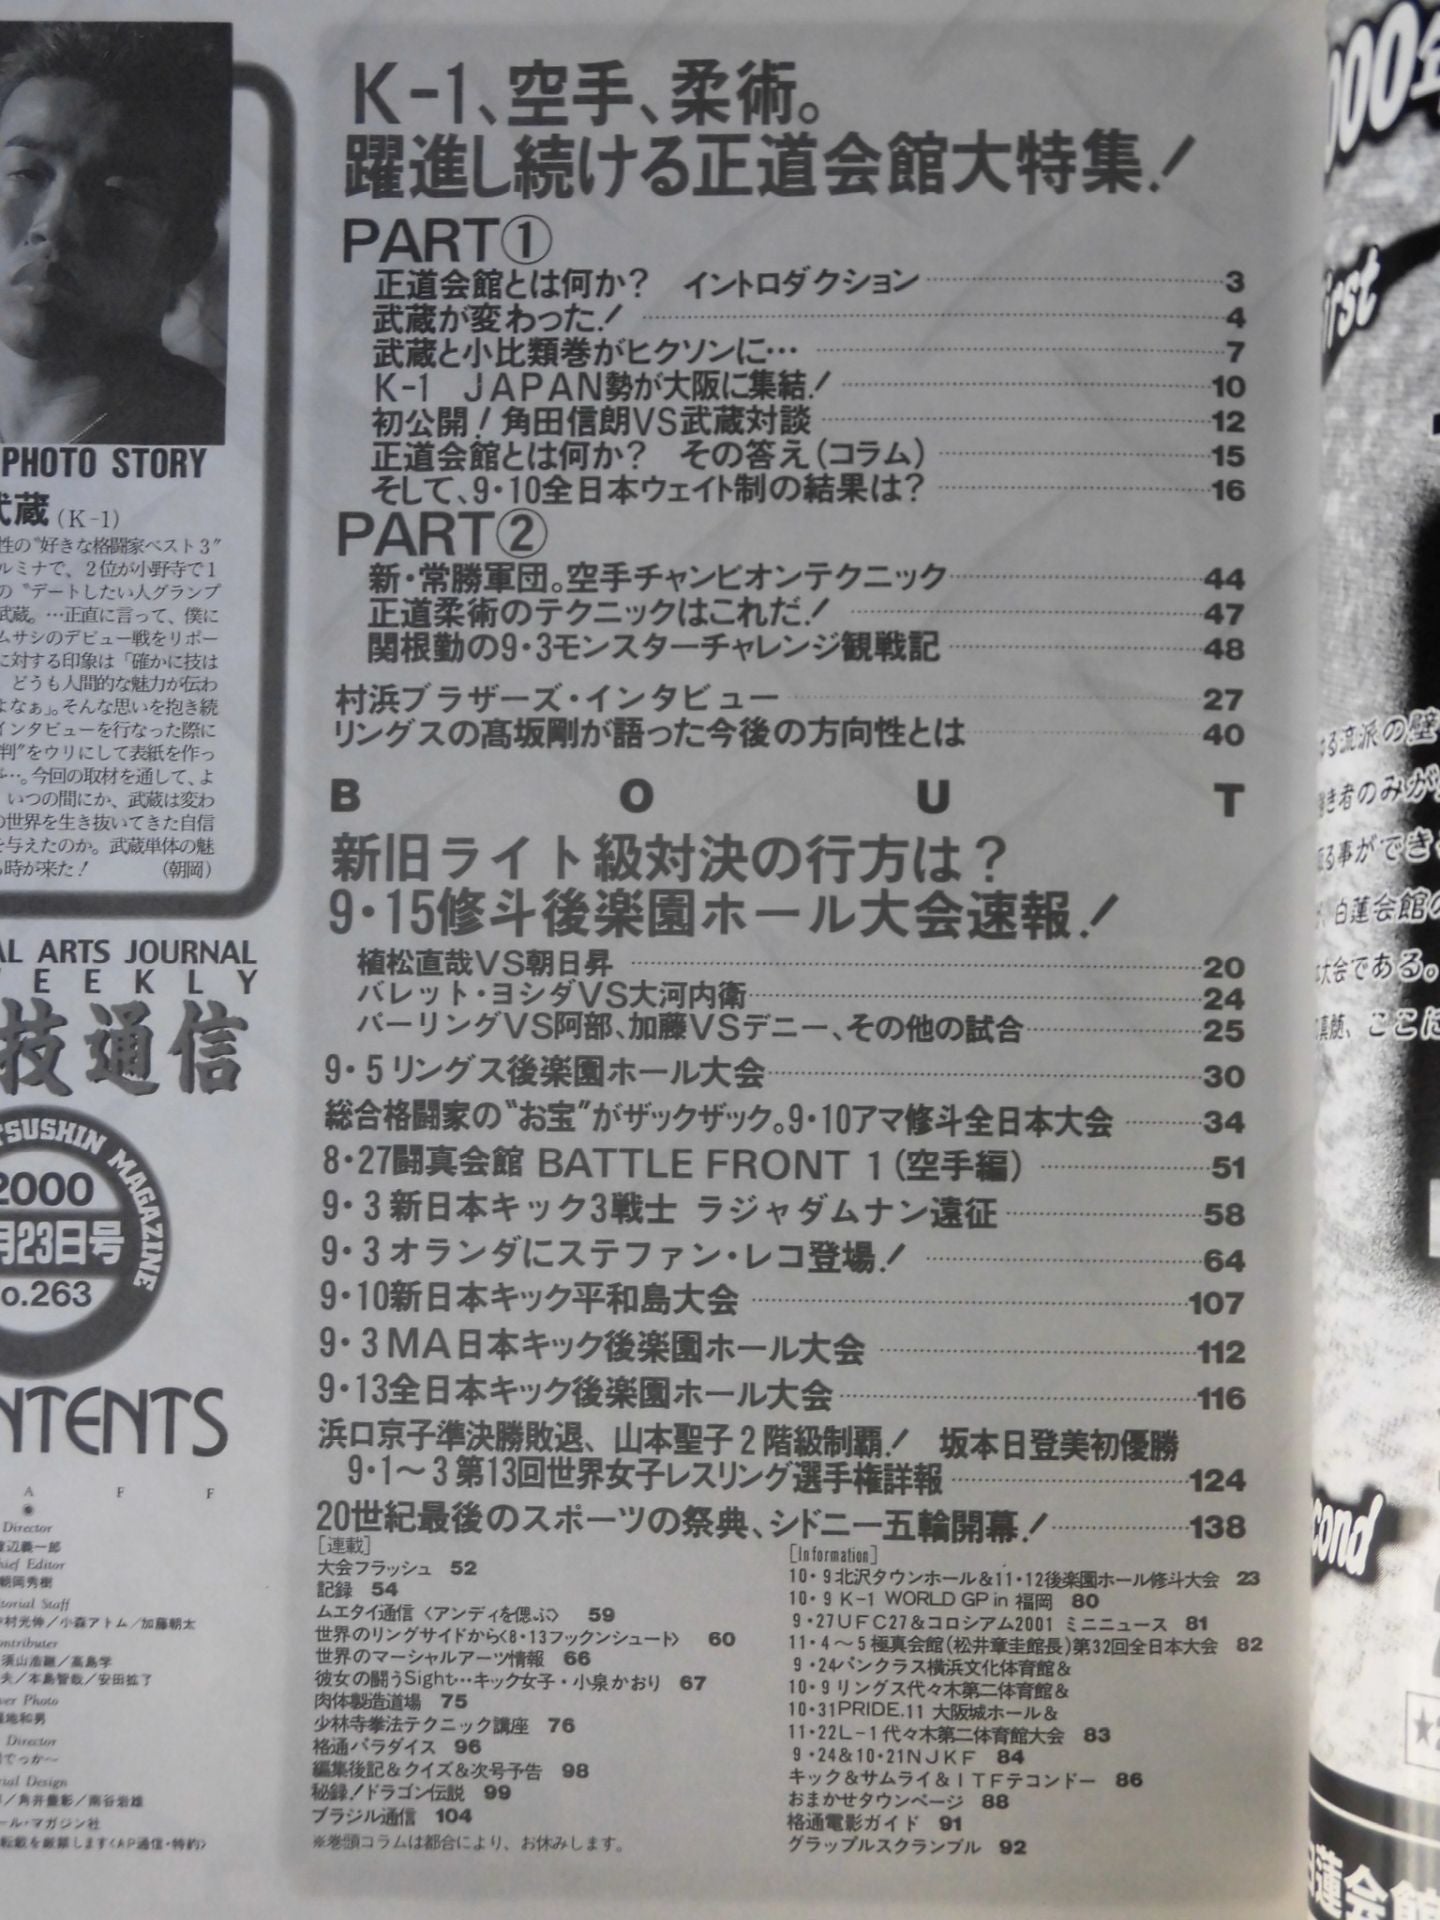 K-1、空手、柔術。
躍進し続ける正道会館大特集！
PART①
正道会館とは何か？　イントロダクション 3
武蔵が変わった！ 4
武蔵と小比類巻がヒクソンに… 7
K-1　JAPAN勢が大阪に集結！ 10
初公開！角田信朗VS武蔵対談 12
正道会館とは何か？　その答え（コラム） 15
そして、9・10全日本ウェイト制の結果は？ 16
PART②
新・常勝軍団。空手チャンピオンテクニック 44
正道柔術のテクニックはこれだ！ 47
関根勤の9・3モンスターチャレンジ観戦記 48
村浜ブラザーズ・インタビュー 27
リングスの髙坂剛が語った今後の方向性とは 40
BOUT
新旧ライト級対決の行方は？
9・15修斗後楽園ホール大会速報！
植松直哉VS朝日昇 20
バレット・ヨシダVS大河内衛 24
パーリングVS阿部、加藤VSデニー、その他の試合 25
9・5リングス後楽園ホール大会 30
総合格闘家の〝お宝〟がザックザック。9・10アマ修斗全日本大会 34
8・27闘真会館 BATTLE FRONT 1（空手編） 51
9・3新日本キック3戦士 ラジャダムナン遠征 58
9・3オランダにステファン・レコ登場！ 64
9・10新日本キック平和島大会 107
9・3MA日本キック後楽園ホール大会 112
9・13全日本キック後楽園ホール大会 116
浜口京子準決勝敗退、山本聖子2階級制覇！　坂本日登美初優勝
9・1～3第13回世界女子レスリング選手権詳報 124
20世紀最後のスポーツの祭典、シドニー五輪開幕！ 138
［連載］
大会フラッシュ 52
記録 54
ムエタイ通信〈アンディを偲ぶ〉 59
世界のリングサイドから〈8・13フックンシュート〉 60
世界のマーシャルアーツ情報 66
彼女の闘うSight…キック女子・小泉かおり 67
肉体製造道場 75
少林寺拳法テクニック講座 76
格通パラダイス 96
編集後記＆クイズ＆次号予告 98
秘録！ドラゴン伝説 99
ブラジル通信 104
※巻頭コラムは都合により、お休みします。
［Information］
10・9北沢タウンホール＆11・12後楽園ホール修斗大会 23
10・9 K-1 WORLD GP in 福岡 80
9・27UFC27＆コロシアム2001 ミニニュース 81
11・4～5極真会館（松井章圭館長）第32回全日本大会 82
9・24パンクラス横浜文化体育館＆
10・9リングス代々木第二体育館＆
10・31PRIDE.11 大阪城ホール＆
11・22L-1代々木第二体育館大会 83
9・24＆10・21NJKF 84
キック＆サムライ＆ITFテコンドー 86
おまかせタウンページ 88
格通電影ガイド 91
グラップルスクランブル 92
PHOTO STORY
武蔵（K-1）
性の〝好きな格闘家ベスト3〟
ルミナで、2位が小野寺で1
の〝デートしたい人グランプ
武蔵。…正直に言って、僕に
ムサシのデビュー戦をリポー
に対する印象は「確かに技は
どうも人間的な魅力が伝わ
よなぁ」。そんな思いを抱き続
インタビューを行なった際に
判〟をウリにして表紙を作っ
…。今回の取材を通して、よ
いつの間にか、武蔵は変わ
の世界を生き抜いてきた自信
を与えたのか。武蔵単体の魅
る時が来た！　（朝岡）
AL ARTS JOURNAL
WEEKLY
技通信
TSUSHIN MAGAZINE
2000
月23日号
o.263
NTENTS
A F F
Director
辺義一郎
hief Editor
朝岡秀樹
itorial Staff
中村光伸／小森アトム／加藤朝太
ontributer
須山浩継／高島学
夫／本島智哉／安田拡了
ver Photo
Director
でっか～
rial Design
ール・マガジン社
転載を厳禁します〈AP通信・特約〉
000年
irst
る流派の壁
き者のみが
る事ができ
白蓮会館の
大会である。
真髄、ここに
cond
白蓮会館